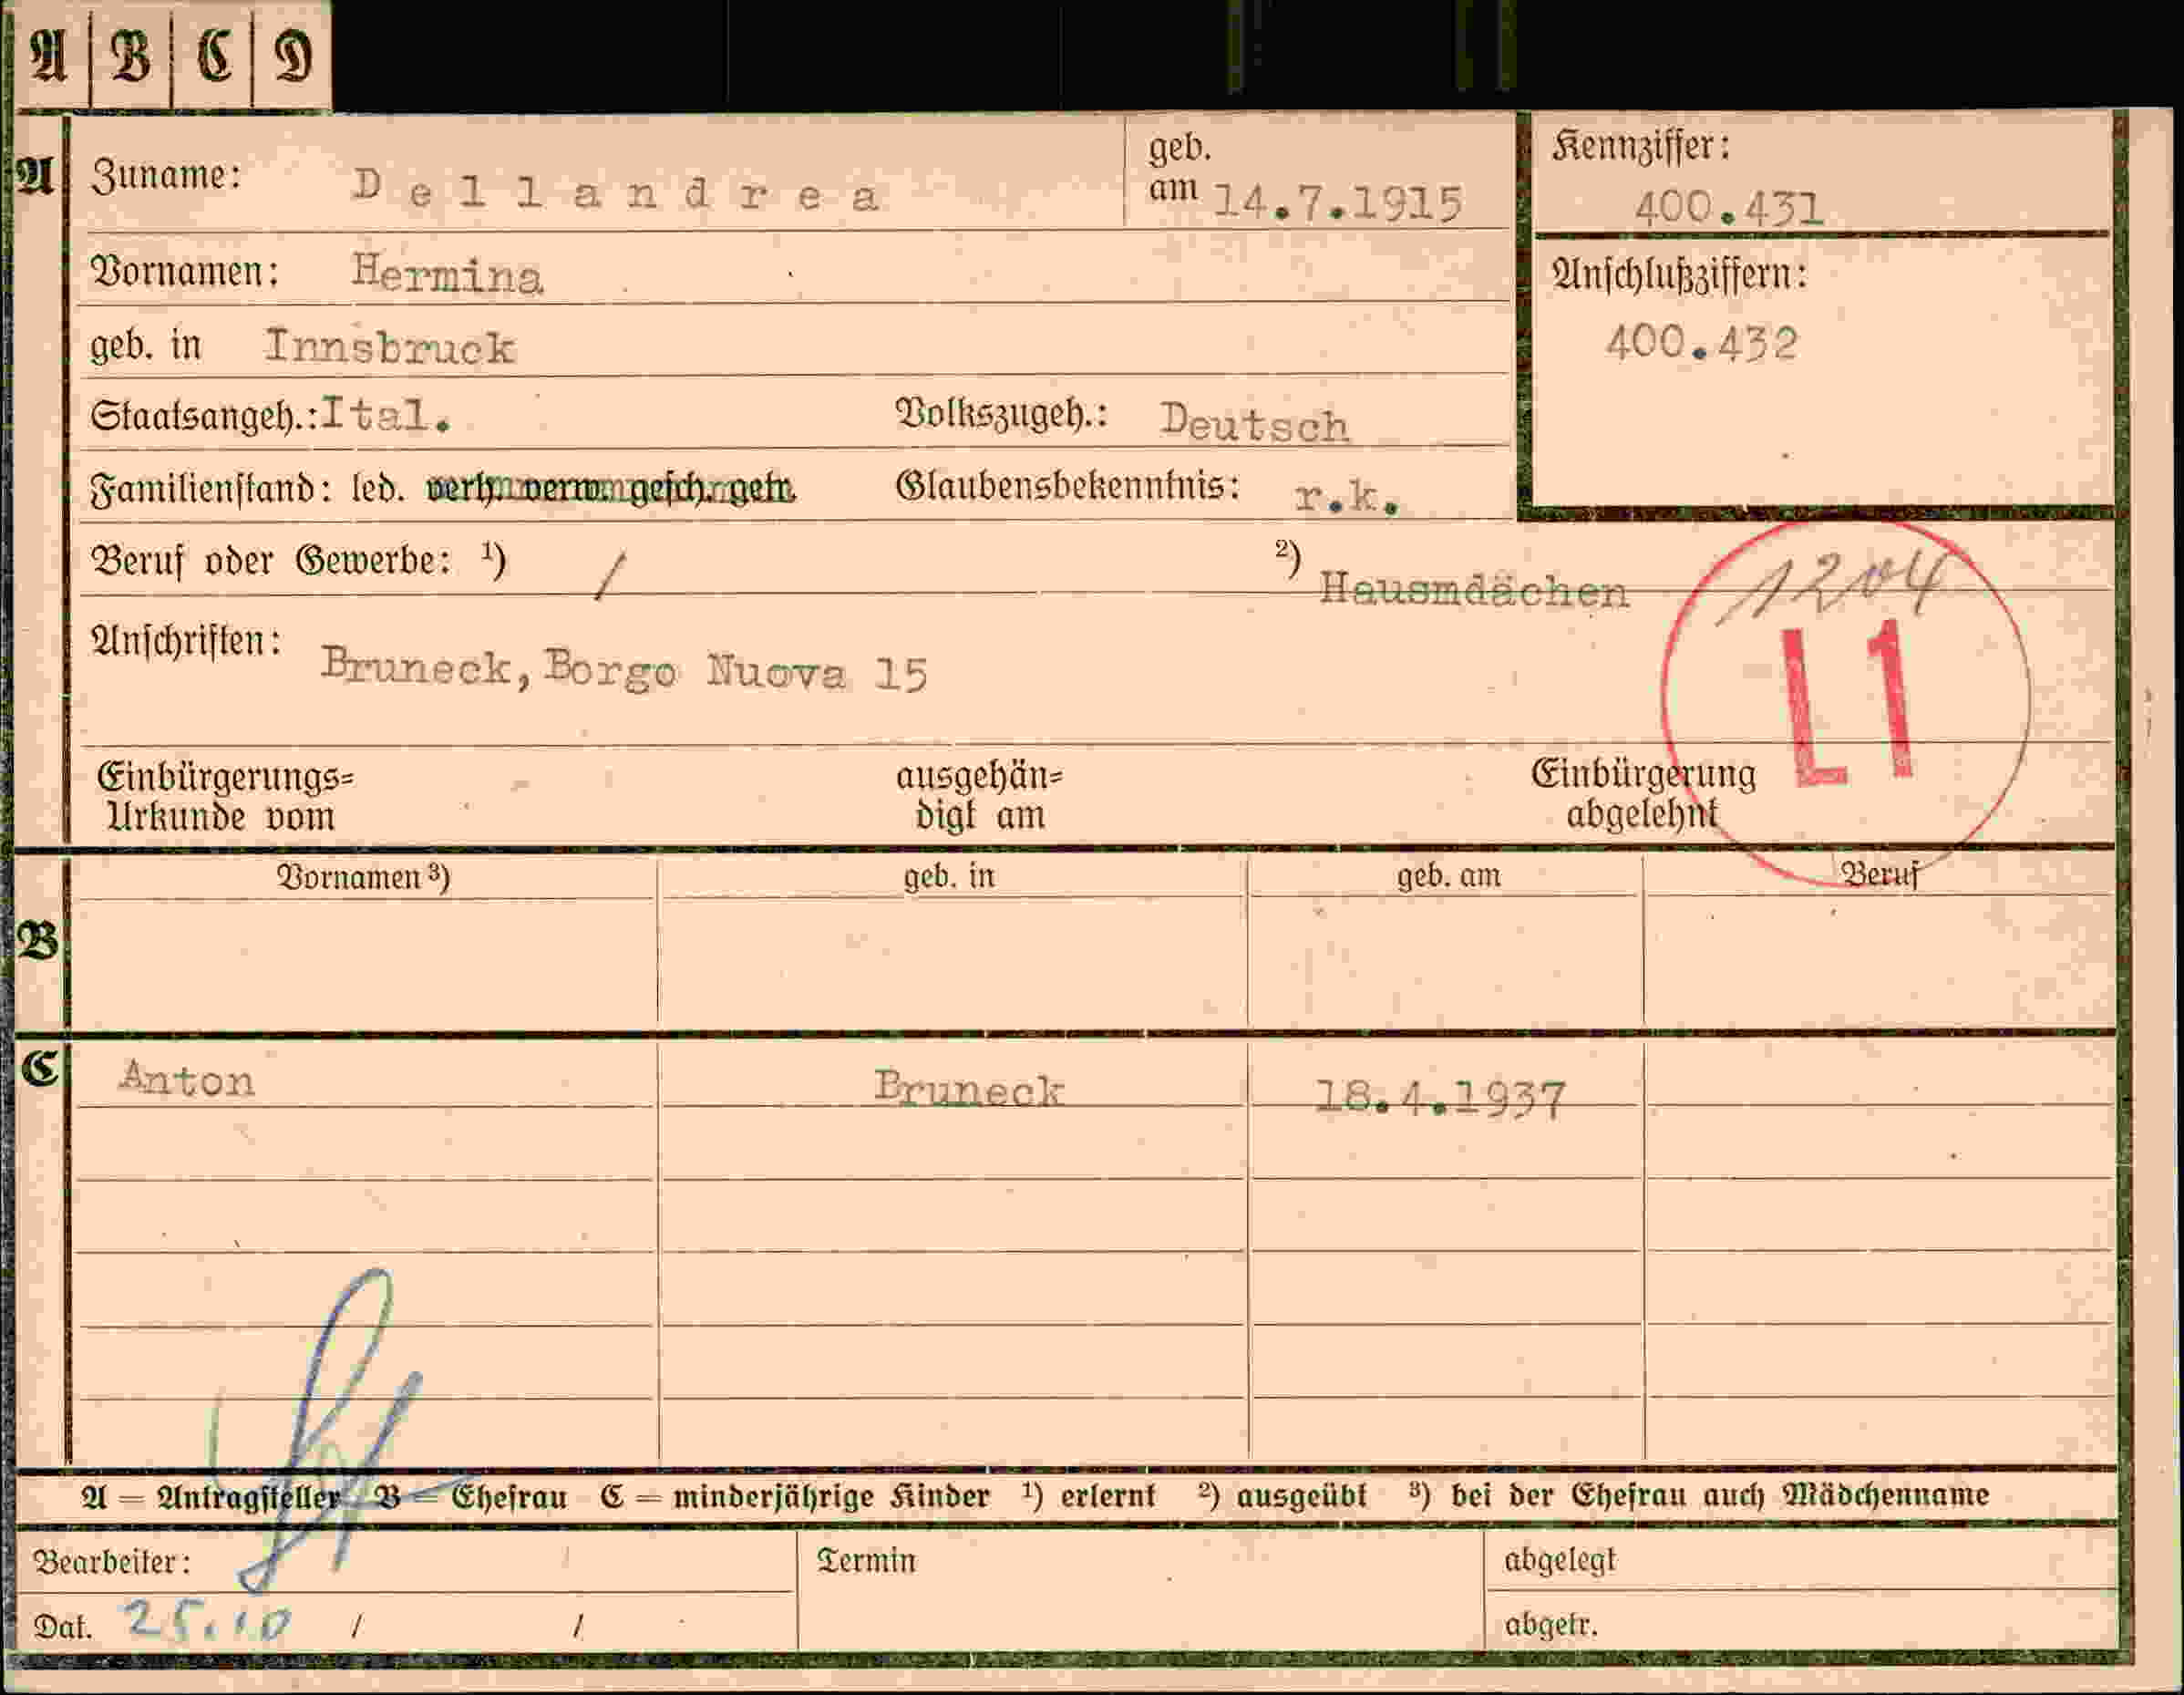 A B C D
A Zuname: Dellandrea geb. am 14.7.1915 Kennziffer: 400.431
Vornamen: Hermina Anschlußziffern: 400.432
geb. in Innsbruck
Staatsangeh.: Ital. Volkszugeh.: Deutsch
Familienstand: led. verh. verw. gesch. getr. Glaubensbekenntnis: r.k.
Beruf oder Gewerbe: 1) / 2) Hausmdächen
1204
L1
Anschriften: Bruneck, Borgo Nuova 15
Einbürgerungs= ausgehän= Einbürgerung
Urkunde vom digt am abgelehnt
Vornamen 3) geb. in geb. am Beruf
B
C Anton Bruneck 18.4.1937
A = Antragsteller B = Ehefrau C = minderjährige Kinder 1) erlernt 2) ausgeübt 3) bei der Ehefrau auch Mädchenname
Bearbeiter: Termin abgelegt
Dat. 25.10 / / abgetr.